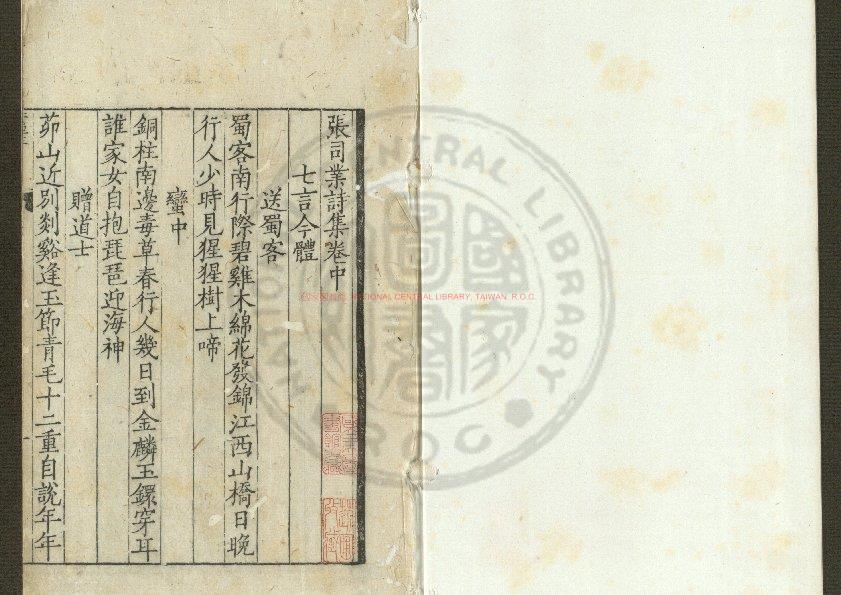 張司業詩集卷中
七言今體
送蜀客
蜀客南行際碧雞木綿花發錦江西山橋日晚
行人少時見猩猩樹上啼
蠻中
銅柱南邊毒草春行人幾日到金麟玉鐶穿耳
誰家女自抱琵琶迎海神
贈道士
茆山近別剡谿逢玉節青毛十二重自說年年
NATIONAL CENTRAL LIBRARY, TAIWAN R.O.C.
CENTRAL LIBRARY
R.O.C